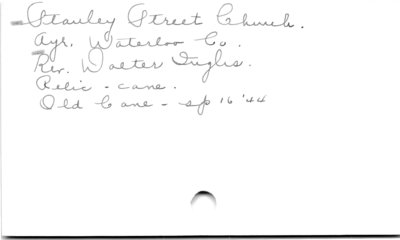 Stanley Street Church.
Ayr. Waterloo Co.
Rev. Walter Inglis.
Relic - cane.
Old Cane - sp 16 '44